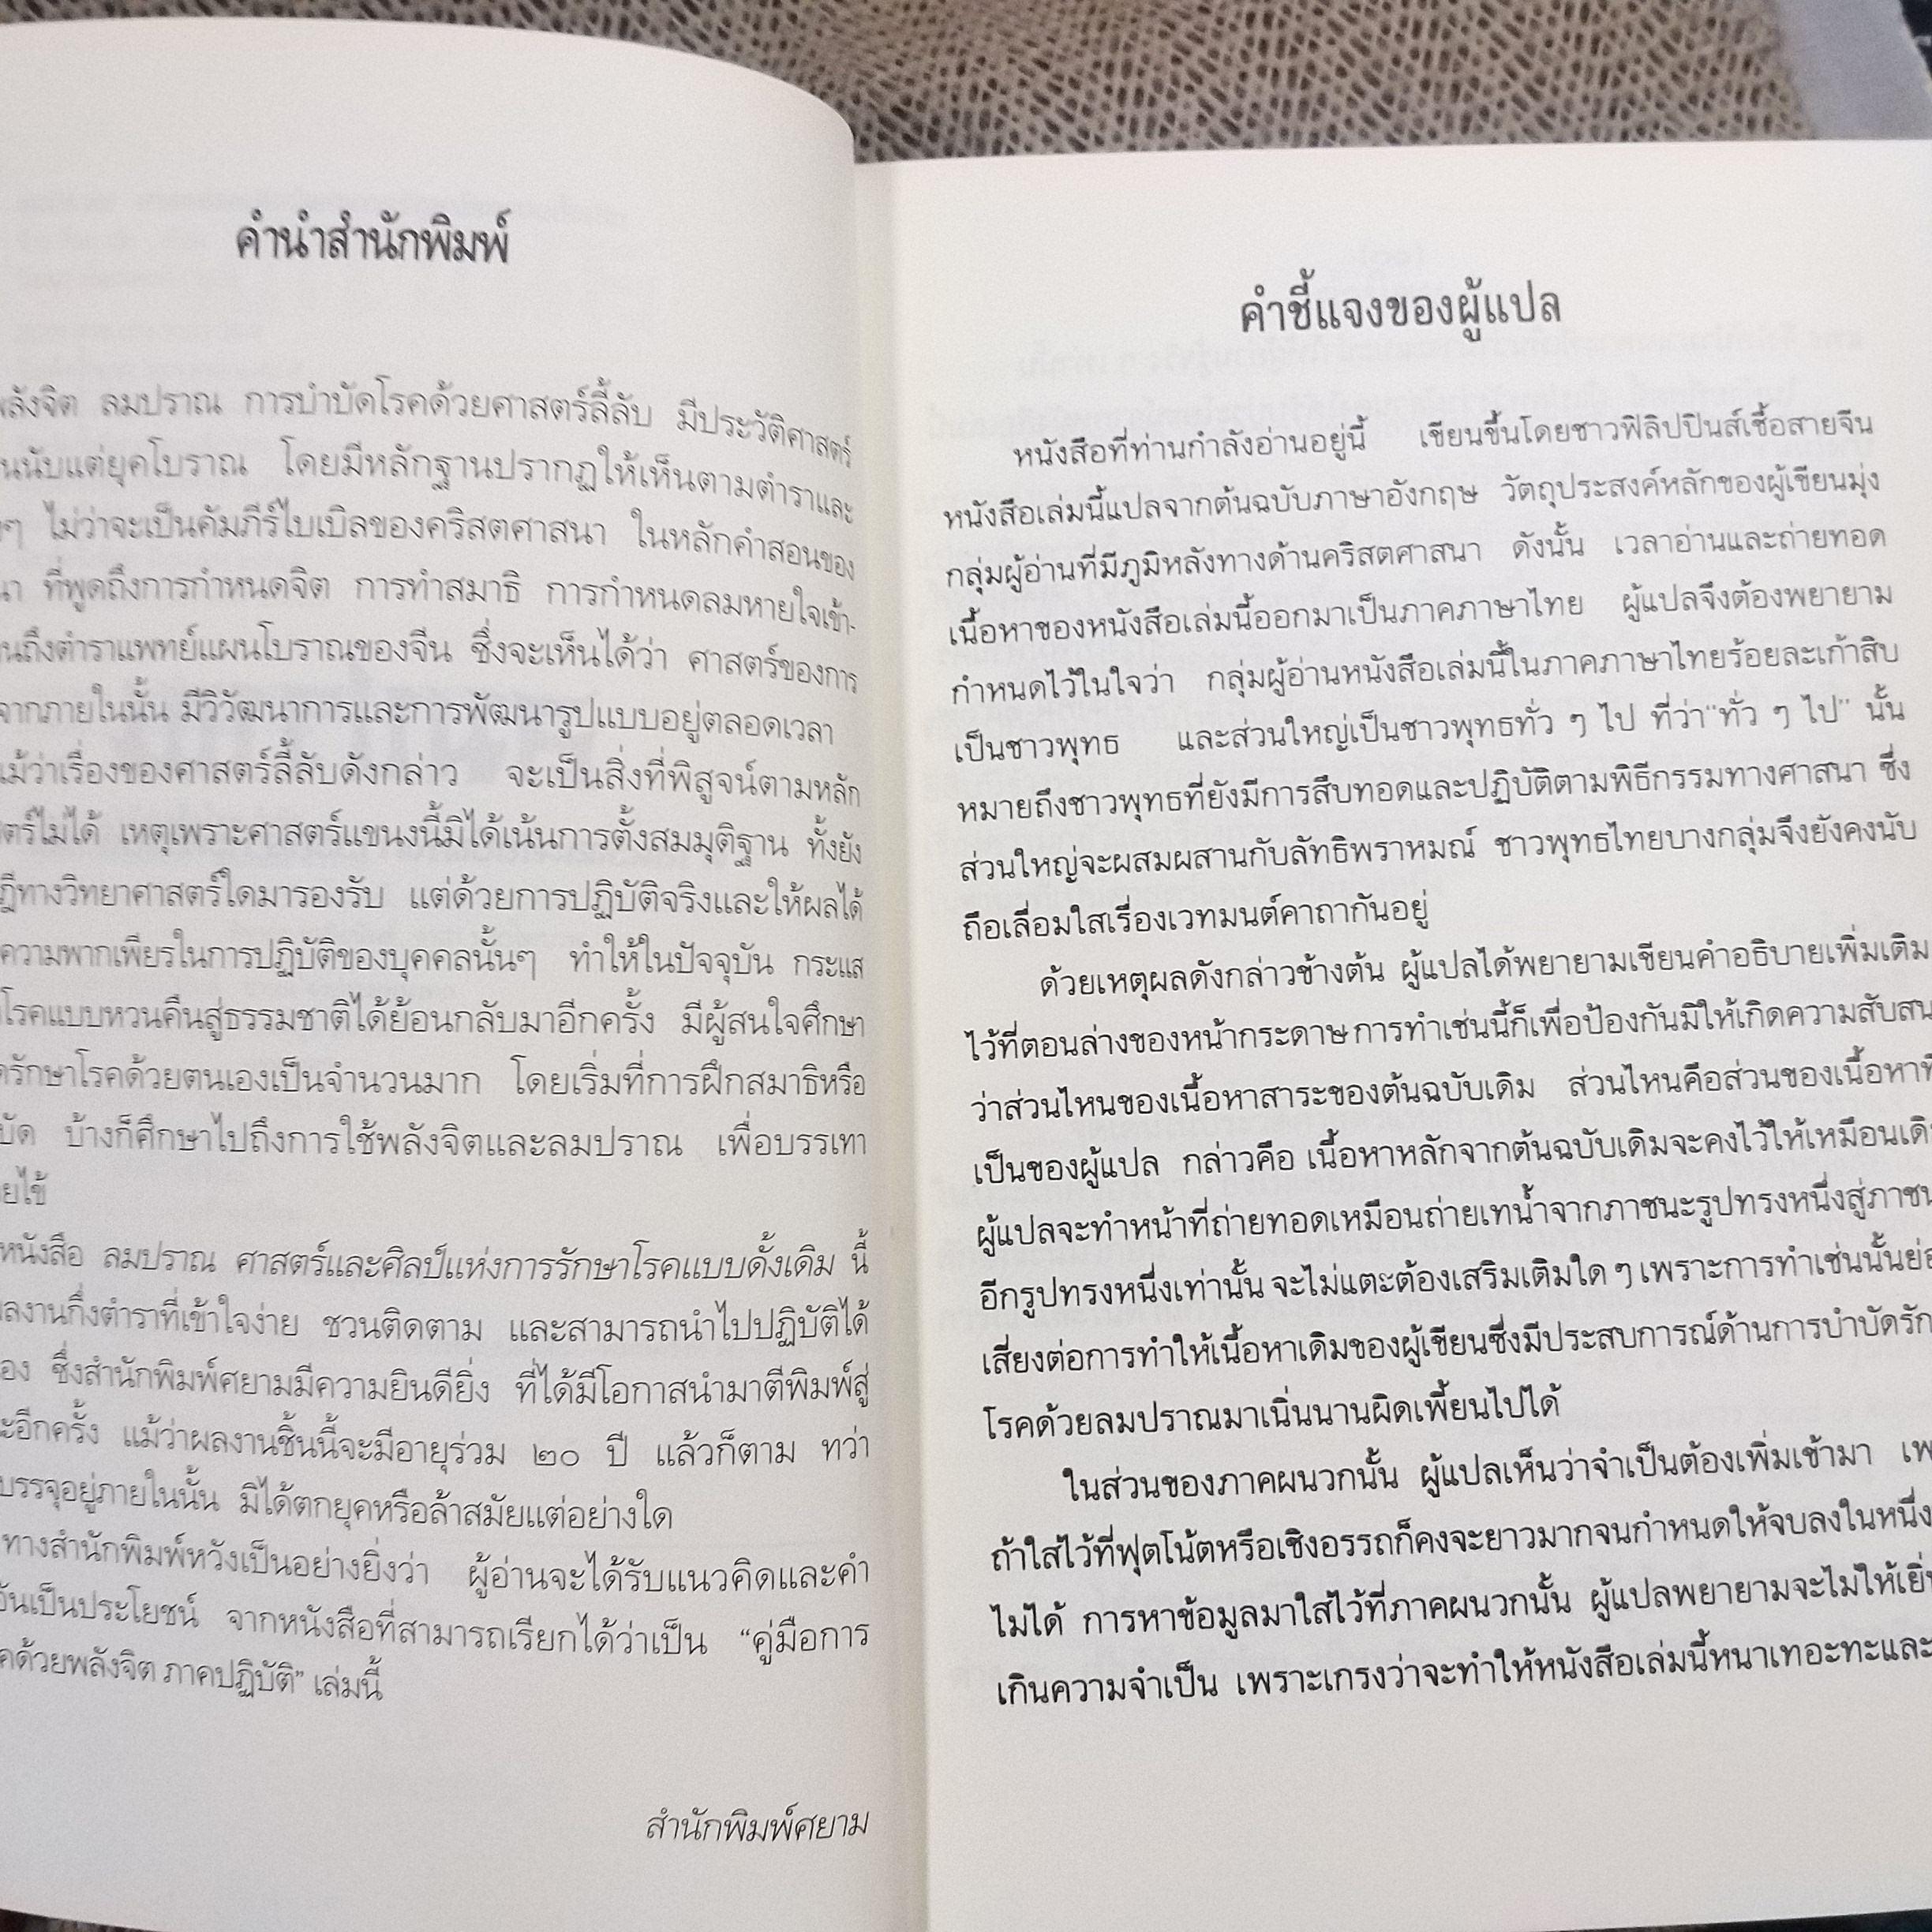 คำนำสำนักพิมพ์
พลังจิต ลมปราณ การบำบัดโรคด้วยศาสตร์ลี้ลับ มีประวัติศาสตร์
นับแต่ยุคโบราณ โดยมีหลักฐานปรากฏให้เห็นตามตำราและ
ๆ ไม่ว่าจะเป็นคัมภีร์ไบเบิลของคริสตศาสนา ในหลักคำสอนของ
ที่พูดถึงการกำหนดจิต การทำสมาธิ การกำหนดลมหายใจเข้า-
ถึงตำราแพทย์แผนโบราณของจีน ซึ่งจะเห็นได้ว่า ศาสตร์ของการ
จากภายในนั้น มีวิวัฒนาการและการพัฒนารูปแบบอยู่ตลอดเวลา
แม้ว่าเรื่องของศาสตร์ลี้ลับดังกล่าว จะเป็นสิ่งที่พิสูจน์ตามหลัก
ไม่ได้ เหตุเพราะศาสตร์แขนงนี้มิได้เน้นการตั้งสมมุติฐาน ทั้งยัง
ทางวิทยาศาสตร์ใดมารองรับ แต่ด้วยการปฏิบัติจริงและให้ผลได้
ความพากเพียรในการปฏิบัติของบุคคลนั้นๆ ทำให้ในปัจจุบัน กระแส
โรคแบบหวนคืนสู่ธรรมชาติได้ย้อนกลับมาอีกครั้ง มีผู้สนใจศึกษา
รักษาโรคด้วยตนเองเป็นจำนวนมาก โดยเริ่มที่การฝึกสมาธิหรือ
บัด บ้างก็ศึกษาไปถึงการใช้พลังจิตและลมปราณ เพื่อบรรเทา
ยไข้
หนังสือ ลมปราณ ศาสตร์และศิลป์แห่งการรักษาโรคแบบดั้งเดิม นี้
ลงานกึ่งตำราที่เข้าใจง่าย ชวนติดตาม และสามารถนำไปปฏิบัติได้
อง ซึ่งสำนักพิมพ์ศยามมีความยินดียิ่ง ที่ได้มีโอกาสนำมาตีพิมพ์สู่
ะอีกครั้ง แม้ว่าผลงานชิ้นนี้จะมีอายุร่วม ๒๐ ปี แล้วก็ตาม ทว่า
บรรจุอยู่ภายในนั้น มิได้ตกยุคหรือล้าสมัยแต่อย่างใด
ทางสำนักพิมพ์หวังเป็นอย่างยิ่งว่า ผู้อ่านจะได้รับแนวคิดและคำ
อันเป็นประโยชน์ จากหนังสือที่สามารถเรียกได้ว่าเป็น “คู่มือการ
คด้วยพลังจิต ภาคปฏิบัติ” เล่มนี้
สำนักพิมพ์ศยาม
คำชี้แจงของผู้แปล
หนังสือที่ท่านกำลังอ่านอยู่นี้ เขียนขึ้นโดยชาวฟิลิปปินส์เชื้อสายจีน
หนังสือเล่มนี้แปลจากต้นฉบับภาษาอังกฤษ วัตถุประสงค์หลักของผู้เขียนมุ่ง
กลุ่มผู้อ่านที่มีภูมิหลังทางด้านคริสตศาสนา ดังนั้น เวลาอ่านและถ่ายทอด
เนื้อหาของหนังสือเล่มนี้ออกมาเป็นภาคภาษาไทย ผู้แปลจึงต้องพยายาม
กำหนดไว้ในใจว่า กลุ่มผู้อ่านหนังสือเล่มนี้ในภาคภาษาไทยร้อยละเก้าสิบ
เป็นชาวพุทธ และส่วนใหญ่เป็นชาวพุทธทั่ว ๆ ไป ที่ว่า“ทั่ว ๆ ไป” นั้น
หมายถึงชาวพุทธที่ยังมีการสืบทอดและปฏิบัติตามพิธีกรรมทางศาสนา ซึ่ง
ส่วนใหญ่จะผสมผสานกับลัทธิพราหมณ์ ชาวพุทธไทยบางกลุ่มจึงยังคงนับ
ถือเลื่อมใสเรื่องเวทมนต์คาถากันอยู่
ด้วยเหตุผลดังกล่าวข้างต้น ผู้แปลได้พยายามเขียนคำอธิบายเพิ่มเติม
ไว้ที่ตอนล่างของหน้ากระดาษ การทำเช่นนี้ก็เพื่อป้องกันมิให้เกิดความสับสน
ว่าส่วนไหนของเนื้อหาสาระของต้นฉบับเดิม ส่วนไหนคือส่วนของเนื้อหาที่
เป็นของผู้แปล กล่าวคือ เนื้อหาหลักจากต้นฉบับเดิมจะคงไว้ให้เหมือนเดิม
ผู้แปลจะทำหน้าที่ถ่ายทอดเหมือนถ่ายเทน้ำจากภาชนะรูปทรงหนึ่งสู่ภาชน
อีกรูปทรงหนึ่งเท่านั้น จะไม่แตะต้องเสริมเติมใด ๆ เพราะการทำเช่นนั้นย่อ
เสี่ยงต่อการทำให้เนื้อหาเดิมของผู้เขียนซึ่งมีประสบการณ์ด้านการบำบัดรัก
โรคด้วยลมปราณมาเนิ่นนานผิดเพี้ยนไปได้
ในส่วนของภาคผนวกนั้น ผู้แปลเห็นว่าจำเป็นต้องเพิ่มเข้ามา เพ
ถ้าใส่ไว้ที่ฟุตโน้ตหรือเชิงอรรถก็คงจะยาวมากจนกำหนดให้จบลงในหนึ่ง
ไม่ได้ การหาข้อมูลมาใส่ไว้ที่ภาคผนวกนั้น ผู้แปลพยายามจะไม่ให้เยิ่น
เกินความจำเป็น เพราะเกรงว่าจะทำให้หนังสือเล่มนี้หนาเทอะทะและ